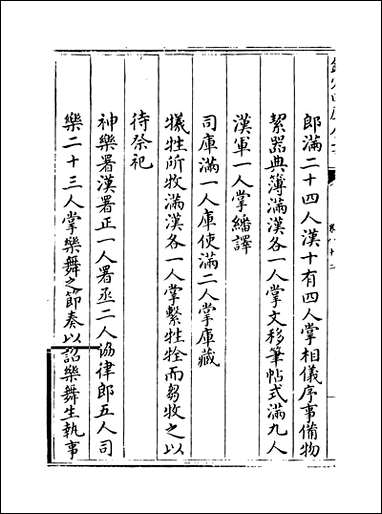 郎滿二十四人漢十有四人掌相儀序事備物
絜器典簿滿漢各一人掌文移筆帖式滿九人
漢軍一人掌繙譯
司庫滿一人庫使滿二人掌庫藏
犧牲所牧滿漢各一人掌繫牲牷而芻牧之以
待祭祀
神樂署漢署正一人署丞二人協律郎五人司
樂二十三人掌樂舞之節奏以詔樂舞生執事